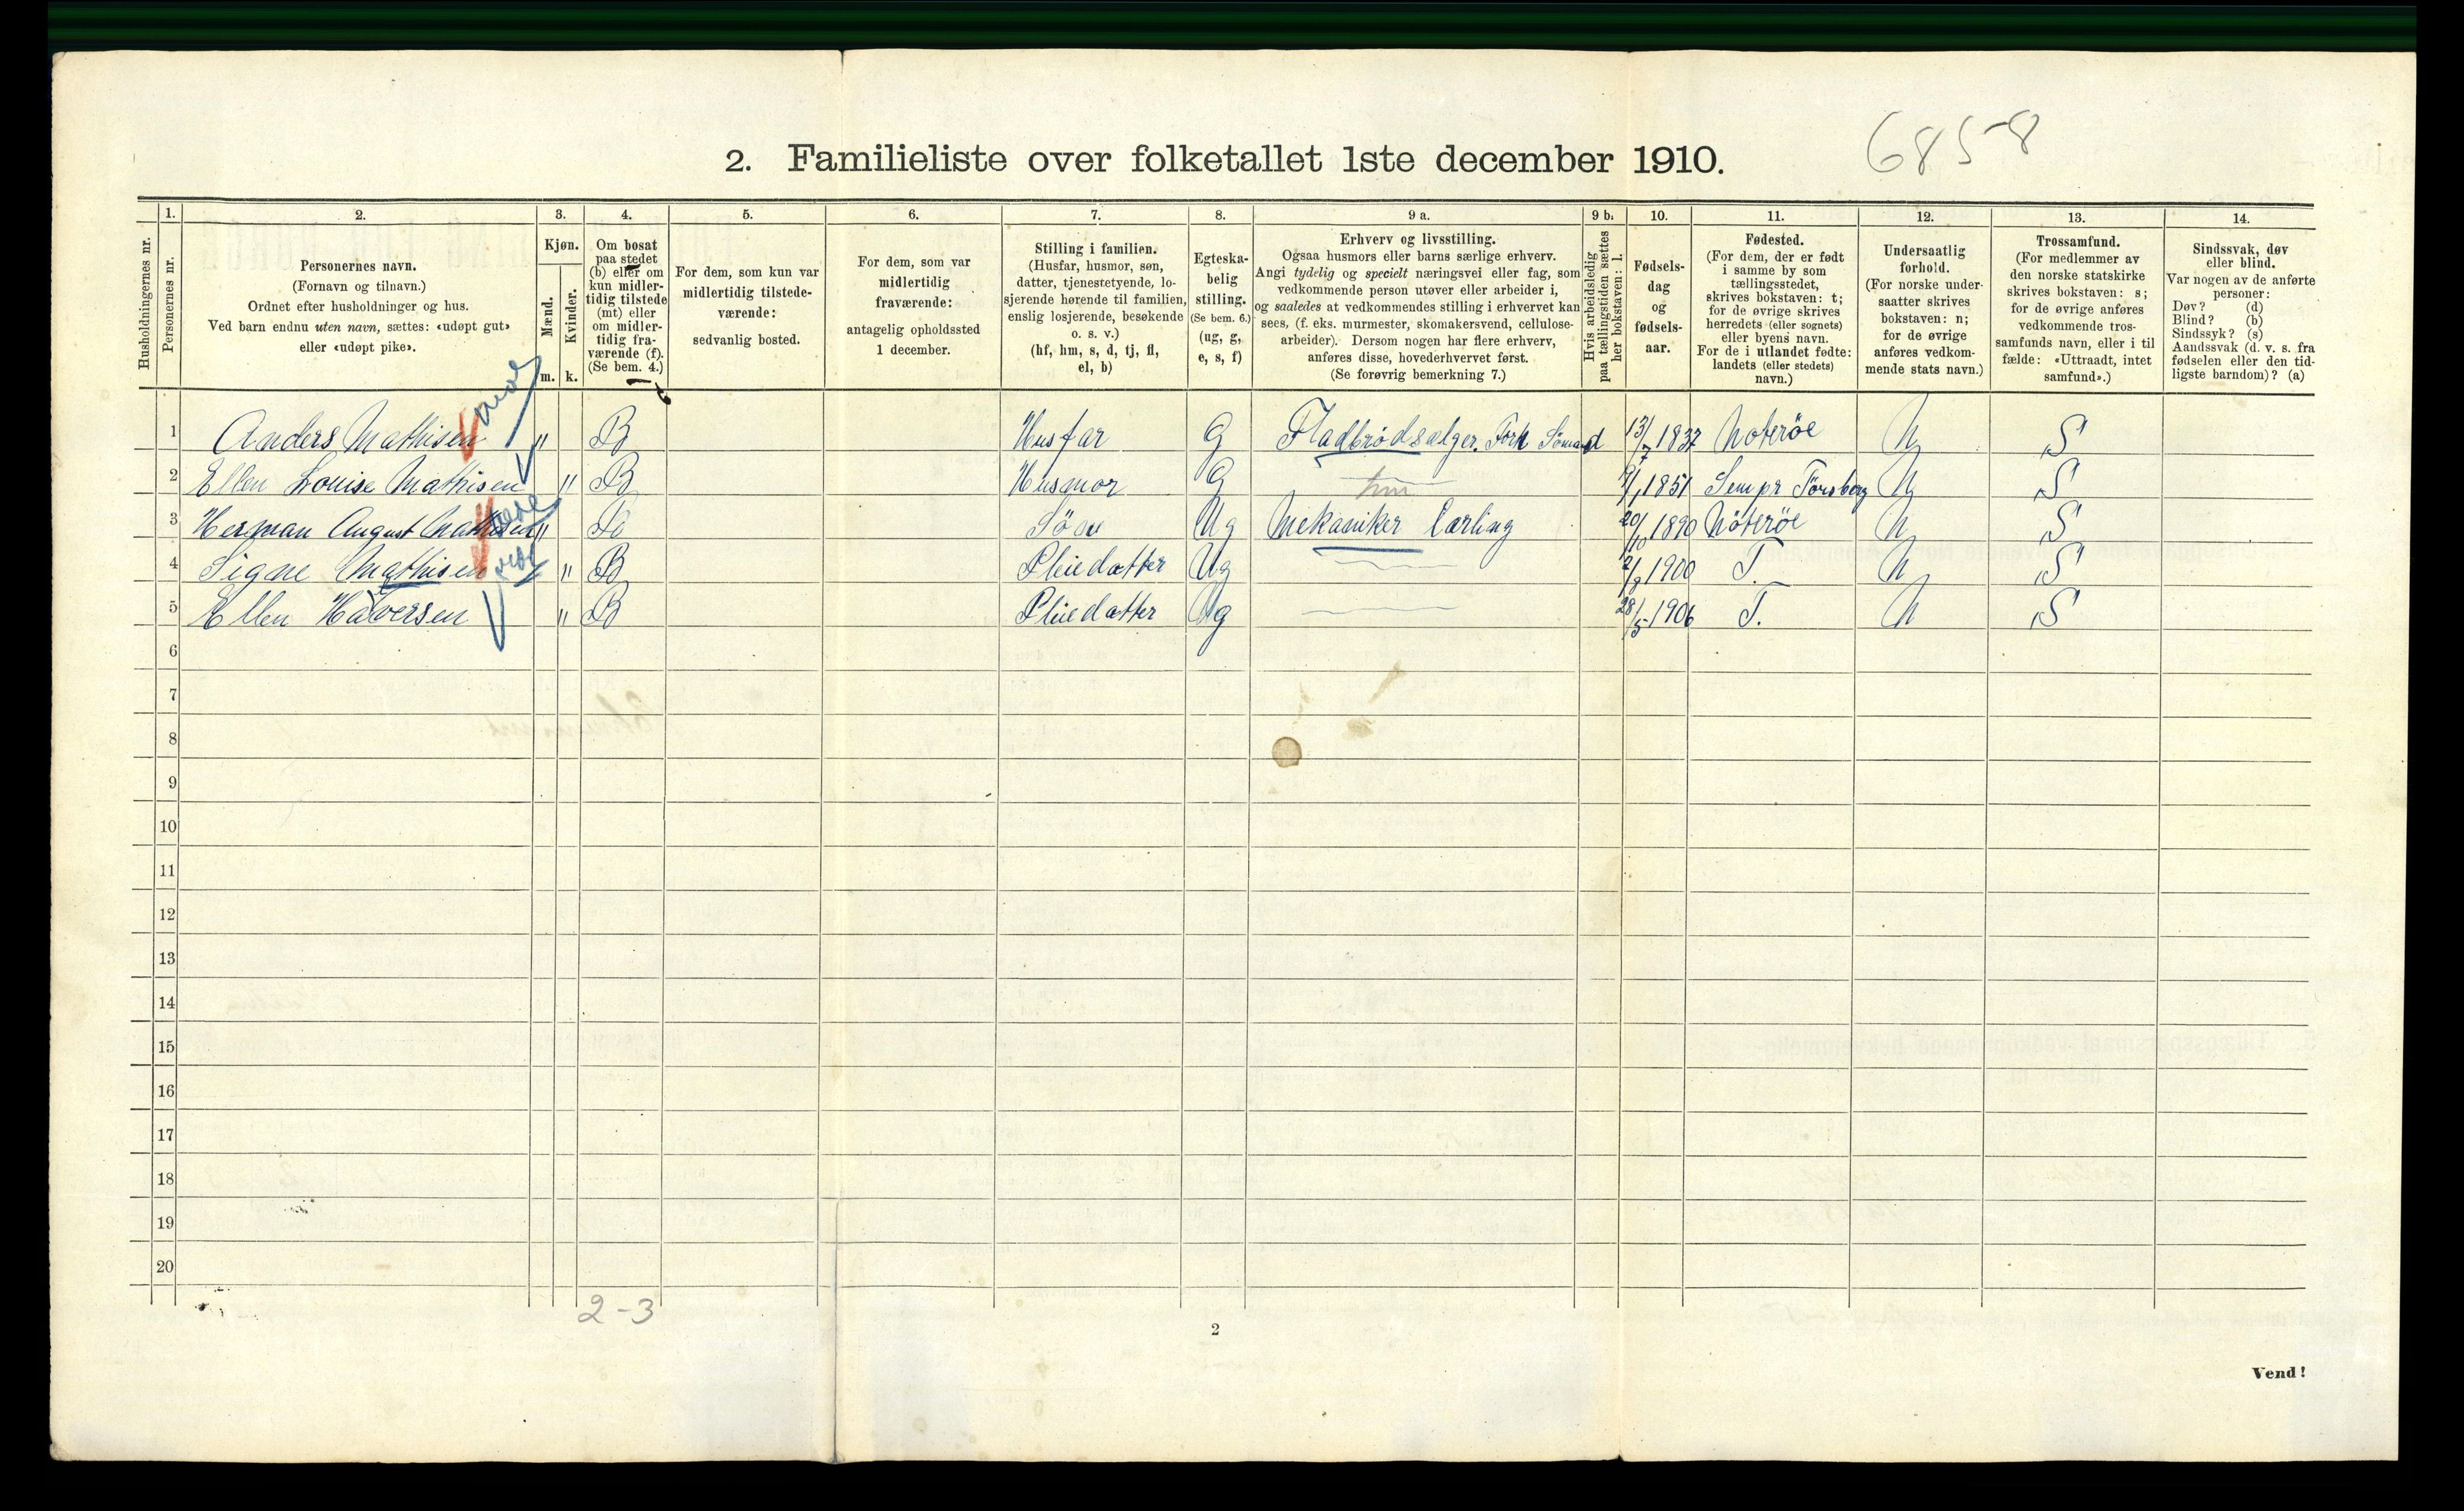 6858
2. Familieliste over folketallet 1ste december 1910.
Husholdningernes nr.
1.
Personernes nr.
2.
Personernes navn.
(Fornavn og tilnavn.)
Ordnet efter husholdninger og hus.
Ved barn endnu uten navn, sættes: «udøpt gut»
eller «udøpt pike».
3.
Kjøn.
Mænd.
m.
Kvinder.
k.
4.
Om bosat
paa stedet
(b) eller om
kun midler-
tidig tilstede
(mt) eller
om midler-
tidig fra-
værende (f).
(Se bem. 4.)
5.
For dem, som kun var
midlertidig tilstede-
værende:
sedvanlig bosted.
6.
For dem, som var
midlertidig
fraværende:
antagelig opholdssted
1 december.
7.
Stilling i familien.
(Husfar, husmor, søn,
datter, tjenestetyende, lo-
sjerende hørende til familien,
enslig losjerende, besøkende
o. s. v.)
(hf, hm, s, d, tj, fl,
el, b)
8.
Egteska-
belig
stilling.
(Se bem. 6.)
(ug, g,
e, s, f)
9 a.
Erhverv og livsstilling.
Ogsaa husmors eller barns særlige erhverv.
Angi tydelig og specielt næringsvei eller fag, som
vedkommende person utøver eller arbeider i,
og saaledes at vedkommendes stilling i erhvervet kan
sees, (f. eks. murmester, skomakersvend, cellulose-
arbeider). Dersom nogen har flere erhverv,
anføres disse, hovederhvervet først.
(Se forøvrig bemerkning 7.)
9 b.
Hvis arbeidsledig
paa tællingstiden sættes
her bokstaven: l.
10.
Fødsels-
dag
og
fødsels-
aar.
11.
Fødested.
(For dem, der er født
i samme by som
tællingsstedet,
skrives bokstaven: t;
for de øvrige skrives
herredets (eller sognets)
eller byens navn.
For de i utlandet fødte:
landets (eller stedets)
navn.)
12.
Undersaatlig
forhold.
(For norske under-
saatter skrives
bokstaven: n;
for de øvrige
anføres vedkom-
mende stats navn.)
13.
Trossamfund.
(For medlemmer av
den norske statskirke
skrives bokstaven: s;
for de øvrige anføres
vedkommende tros-
samfunds navn, eller i til
fælde: «Uttraadt, intet
samfund».)
14.
Sindssvak, døv
eller blind.
Var nogen av de anførte
personer:
Døv? (d)
Blind? (b)
Sindssyk? (s)
Aandssvak (d. v. s. fra
fødselen eller den tid-
ligste barndom)? (a)
1 Anders Mathisen " B Husfar G Fladbrödsælger. Forh Sömand 13/7 1837 Noteröe N S
2 Ellen Louise Mathisen " B Husmor G hm /1 1851 Sem pr Tönsberg N S
3 Herman August Mathisen " B Sön Ug Mekaniker Lærling 20/10 1890 Nöteröe N S
4 Signe Mathisen " B Pleiedatter Ug 2/8 1900 T. N S
5 Ellen Halversen " B Pleiedatter Ug 28/5 1906 T. N S
6
7
8
9
10
11
12
13
14
15
16
17
18
19
20
2-3
2
Vend!